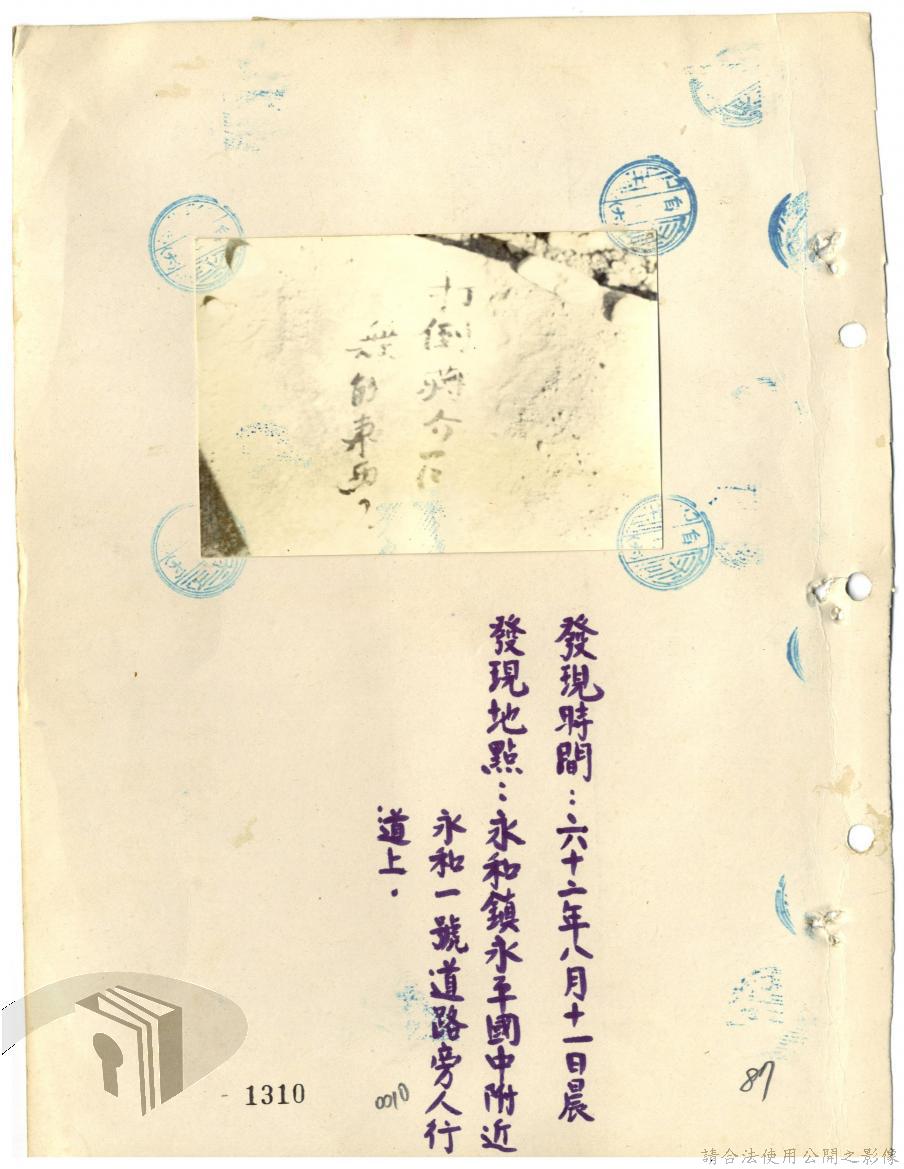 打倒蔣介石
無能東西
發現時間：六十二年八月十一日晨
發現地點：永和鎮永平國中附近
永和一號道路旁人行
道上．
1310
0010
87
請合法使用公開之影像